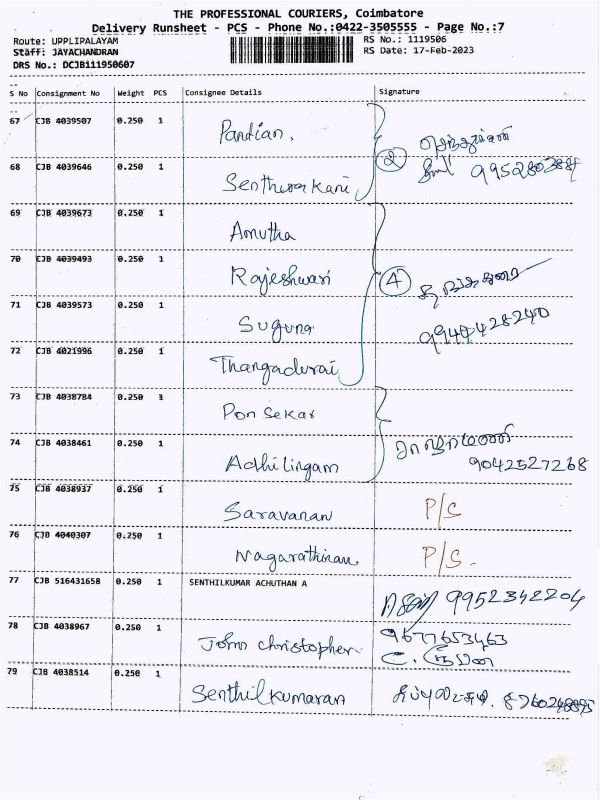 THE PROFESSIONAL COURIERS, Coimbatore
Delivery Runsheet - PCS - Phone No.:0422-3505555 - Page No.:7
Route: UPPLIPALAYAM RS No.: 1119506
Staff: JAYACHANDRAN RS Date: 17-Feb-2023
DRS No.: DCJB111950607
S No Consignment No Weight PCS Consignee Details Signature
67 CJB 4039507 0.250 1 Pandian.
68 CJB 4039646 0.250 1 Senthurakani 2
69 CJB 4039673 0.250 1 Amutha
70 CJB 4039493 0.250 1 Rajeshwari 4
71 CJB 4039573 0.250 1 Suguna 9944428240
72 CJB 4021996 0.250 1 Thangadurai
73 CJB 4038784 0.250 1 Pon Sekar
74 CJB 4038461 0.250 1 Adhilingam 9042527268
75 CJB 4038937 0.250 1 Saravanan P/S
76 CJB 4040307 0.250 1 Nagarathinam P/S.
77 CJB 516431658 0.250 1 SENTHILKUMAR ACHUTHAN A 9952342204
78 CJB 4038967 0.250 1 John christopher 9677653463
79 CJB 4038514 0.250 1 Senthil kumaran